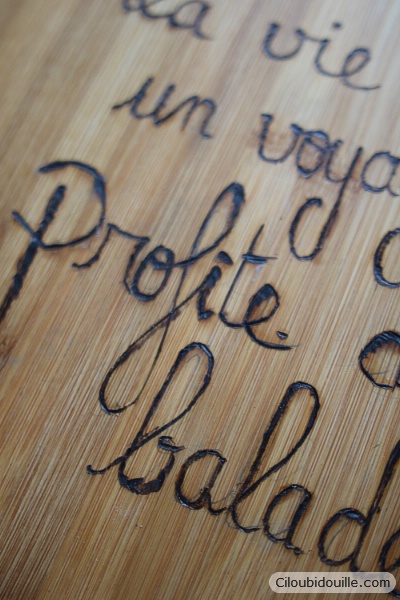 La vie
un voya
Profite
balad
Ciloubidouille.com